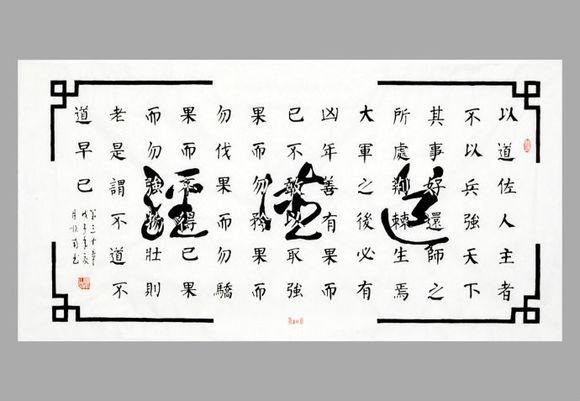 道德經
以道佐人主者
不以兵強天下
其事好還師之
所處荊棘生焉
大軍之後必有
凶年善有果而
已不敢以取強
果而勿矜果而
勿伐果而勿驕
果而不得已果
而勿強物壯則
老是謂不道不
道早已
第三十章
戊子年夏